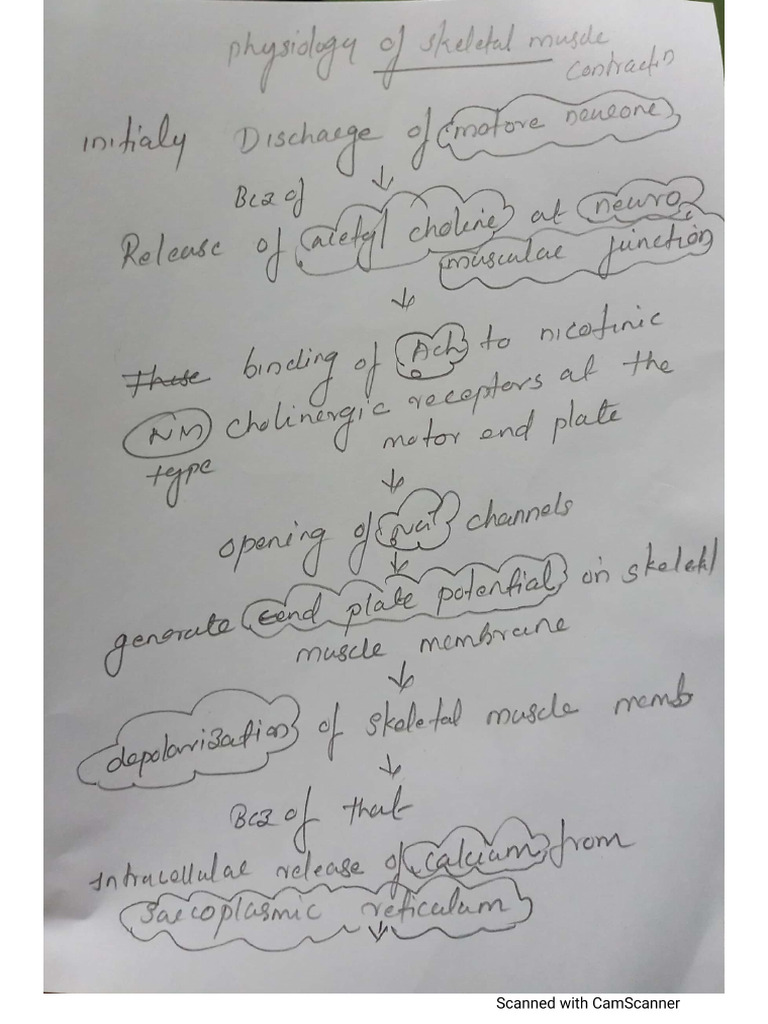 physiology of skeletal muscle
contractn
initialy Discharge of motore neurone
↓
Bcz of
Release of acetyl choline at neuro
muscular junction
↓
These binding of Ach to nicotinic
NM cholinergic receptors at the
type motor end plate
↓
opening of Na+ channels
↓
generate end plate potential on skeletal
muscle membrane
↓
depolarization of skeletal muscle memb
↓
Bcz of that
intracellular release of calcium from
sarcoplasmic reticulum
↓
Scanned with CamScanner